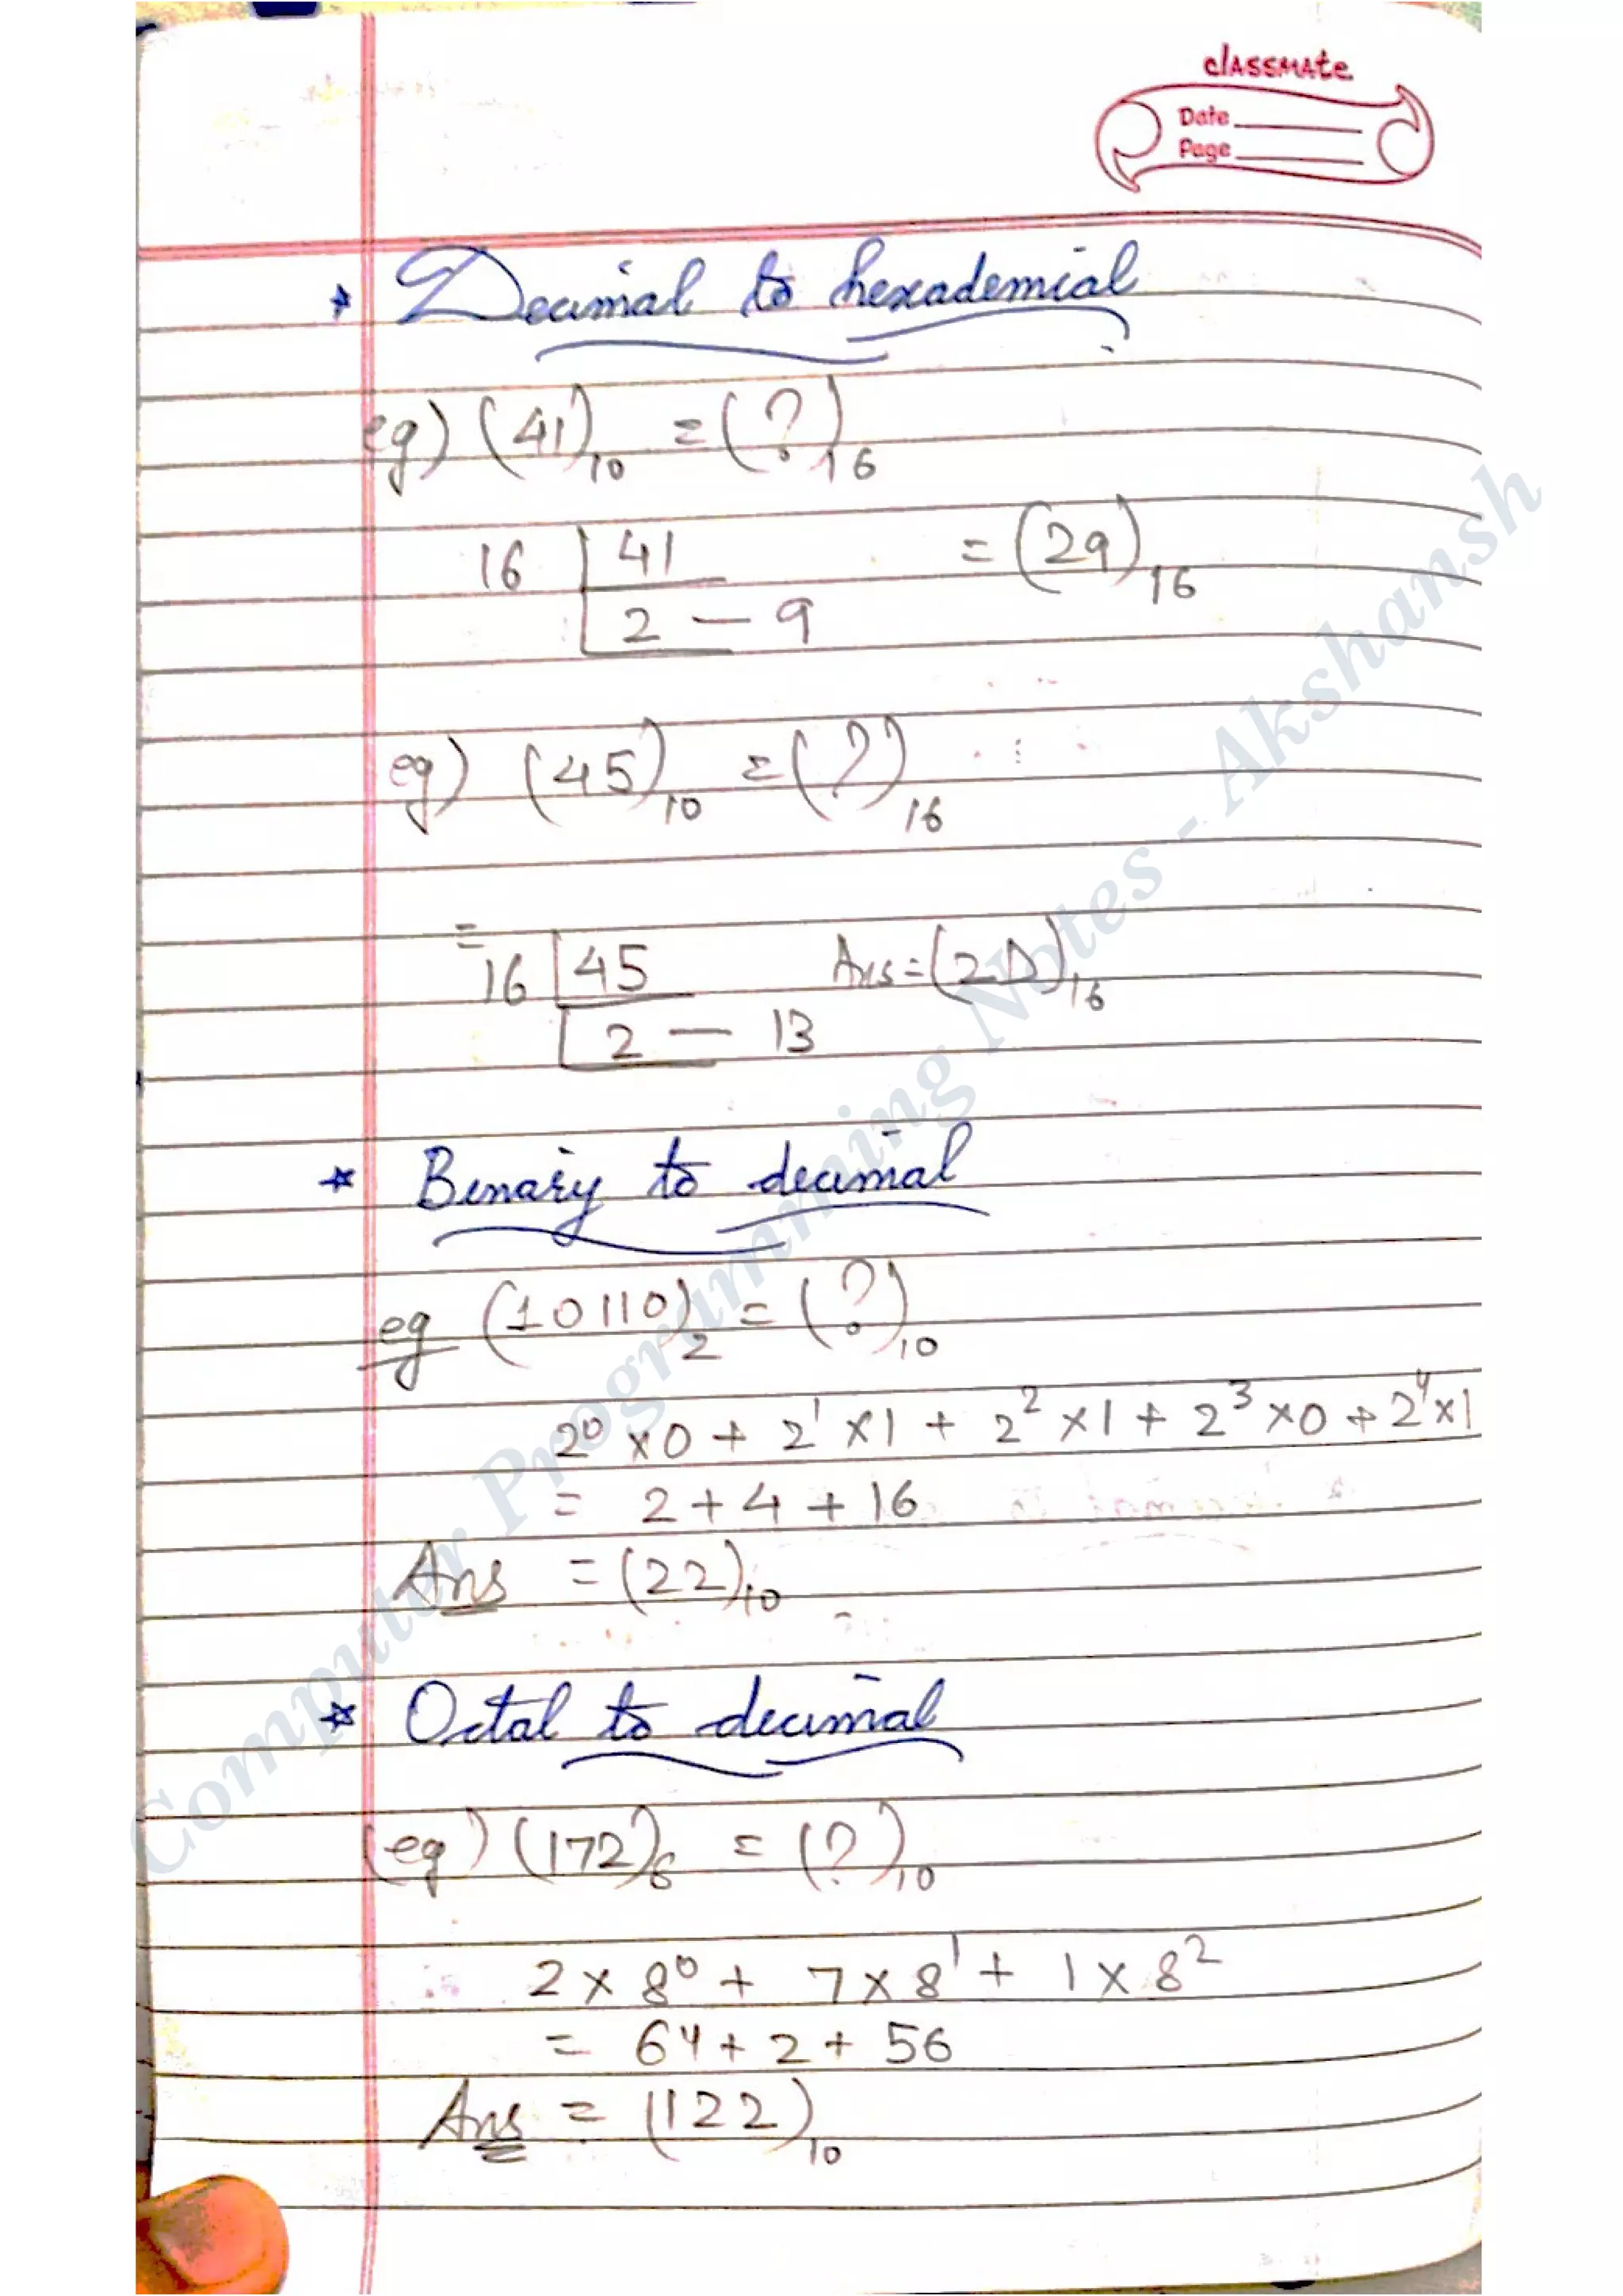 classmate
Date
Page
* Decimal to hexademial
eg) (41)₁₀ = (?)₁₆
16 | 41 = (29)₁₆
2 — 9
eg) (45)₁₀ = (?)₁₆
=
16 | 45 Ans = (2D)₁₆
2 — 13
* Binary to decimal
eg (10110)₂ = (?)₁₀
2⁰ × 0 + 2¹ × 1 + 2² × 1 + 2³ × 0 + 2⁴ × 1
= 2 + 4 + 16
Ans = (22)₁₀
* Octal to decimal
(eg) (172)₈ = (?)₁₀
2 × 8⁰ + 7 × 8¹ + 1 × 8²
= 64 + 2 + 56
Ans = (122)₁₀
Computer Programming Notes - Akshansh